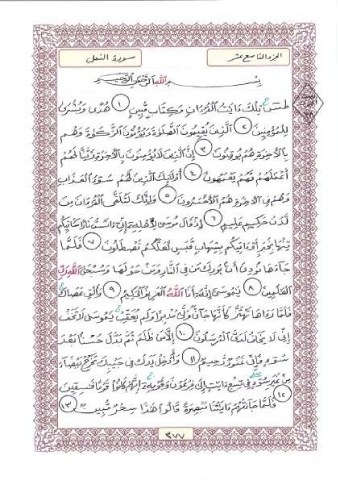 الجزء التاسع عشر
سورة النمل
بِسْمِ اللَّهِ الرَّحْمَٰنِ الرَّحِيمِ
طسٓ تِلْكَ ءَايَٰتُ الْقُرْءَانِ وَكِتَابٍ مُّبِينٍ ١ هُدًى وَبُشْرَىٰ
لِلْمُؤْمِنِينَ ٢ الَّذِينَ يُقِيمُونَ الصَّلَوٰةَ وَيُؤْتُونَ الزَّكَوٰةَ وَهُم
بِالْأَخِرَةِ هُمْ يُوقِنُونَ ٣ إِنَّ الَّذِينَ لَا يُؤْمِنُونَ بِالْأَخِرَةِ زَيَّنَّا لَهُمْ
أَعْمَٰلَهُمْ فَهُمْ يَعْمَهُونَ ٤ أُولَٰئِكَ الَّذِينَ لَهُمْ سُوءُ الْعَذَابِ
وَهُمْ فِي الْأَخِرَةِ هُمُ الْأَخْسَرُونَ ٥ وَإِنَّكَ لَتُلَقَّى الْقُرْءَانَ مِن
لَّدُنْ حَكِيمٍ عَلِيمٍ ٦ إِذْ قَالَ مُوسَىٰ لِأَهْلِهِ إِنِّي ءَانَسْتُ نَارًا سَءَاتِيكُم
مِّنْهَا بِخَبَرٍ أَوْ ءَاتِيكُم بِشِهَابٍ قَبَسٍ لَّعَلَّكُمْ تَصْطَلُونَ ٧ فَلَمَّا
جَاءَهَا نُودِيَ أَن بُورِكَ مَن فِي النَّارِ وَمَنْ حَوْلَهَا وَسُبْحَٰنَ اللَّهِ رَبِّ
الْعَٰلَمِينَ ٨ يَٰمُوسَىٰ إِنَّهُ أَنَا اللَّهُ الْعَزِيزُ الْحَكِيمُ ٩ وَأَلْقِ عَصَاكَ
فَلَمَّا رَءَاهَا تَهْتَزُّ كَأَنَّهَا جَانٌّ وَلَّىٰ مُدْبِرًا وَلَمْ يُعَقِّبْ يَٰمُوسَىٰ لَا تَخَفْ
إِنِّي لَا يَخَافُ لَدَيَّ الْمُرْسَلُونَ ١٠ إِلَّا مَن ظَلَمَ ثُمَّ بَدَّلَ حُسْنًا بَعْدَ
سُوءٍ فَإِنِّي غَفُورٌ رَّحِيمٌ ١١ وَأَدْخِلْ يَدَكَ فِي جَيْبِكَ تَخْرُجْ بَيْضَاءَ
مِنْ غَيْرِ سُوءٍ فِي تِسْعِ ءَايَٰتٍ إِلَىٰ فِرْعَوْنَ وَقَوْمِهِ إِنَّهُمْ كَانُوا قَوْمًا فَٰسِقِينَ
١٢ فَلَمَّا جَاءَتْهُمْ ءَايَٰتُنَا مُبْصِرَةً قَالُوا هَٰذَا سِحْرٌ مُّبِينٌ ١٣
٣٧٧